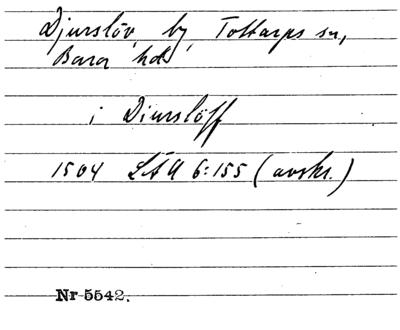 Djurslöv, by, Tottarps sn,
Bara hd
i Diurslöff
1504 LÄU 6:155 (avskr.)
Nr 5542.